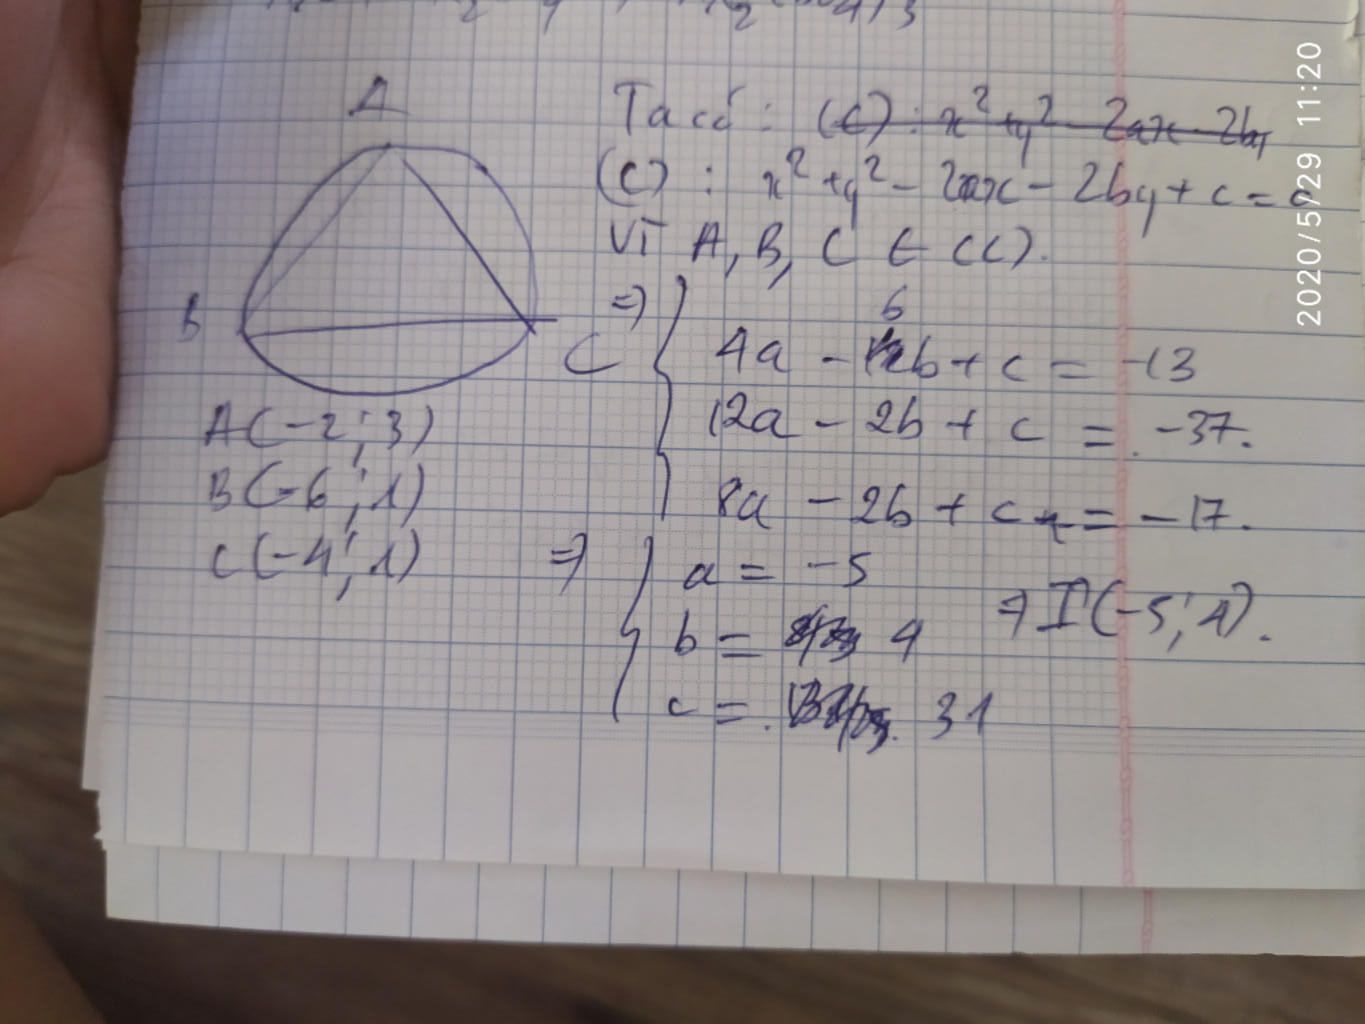 A
B
C
A(-2; 3)
B(-6; 1)
C(-4; 1)
Ta có: (C): x² + y² - 2ax - 2by
(C): x² + y² - 2ax - 2by + c = 0
Vì A, B, C ∈ (C).
=> 6
4a - b + c = -13
12a - 2b + c = -37.
8a - 2b + c = -17.
=> a = -5
b = 4
c = 31
=> I(-5; 4).
2020/5/29 11:20